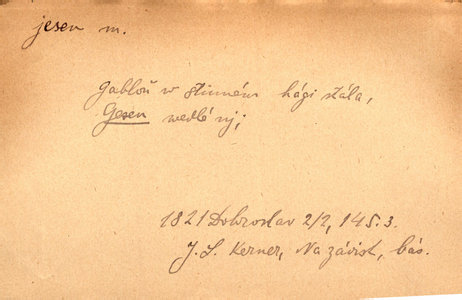 jesen m.
Gabloň w stinném hági stála,
Gesen wedlé nj;
1821 Dobroslav 2/2, 145.3.
J. S. Kerner, Na závist, bás.